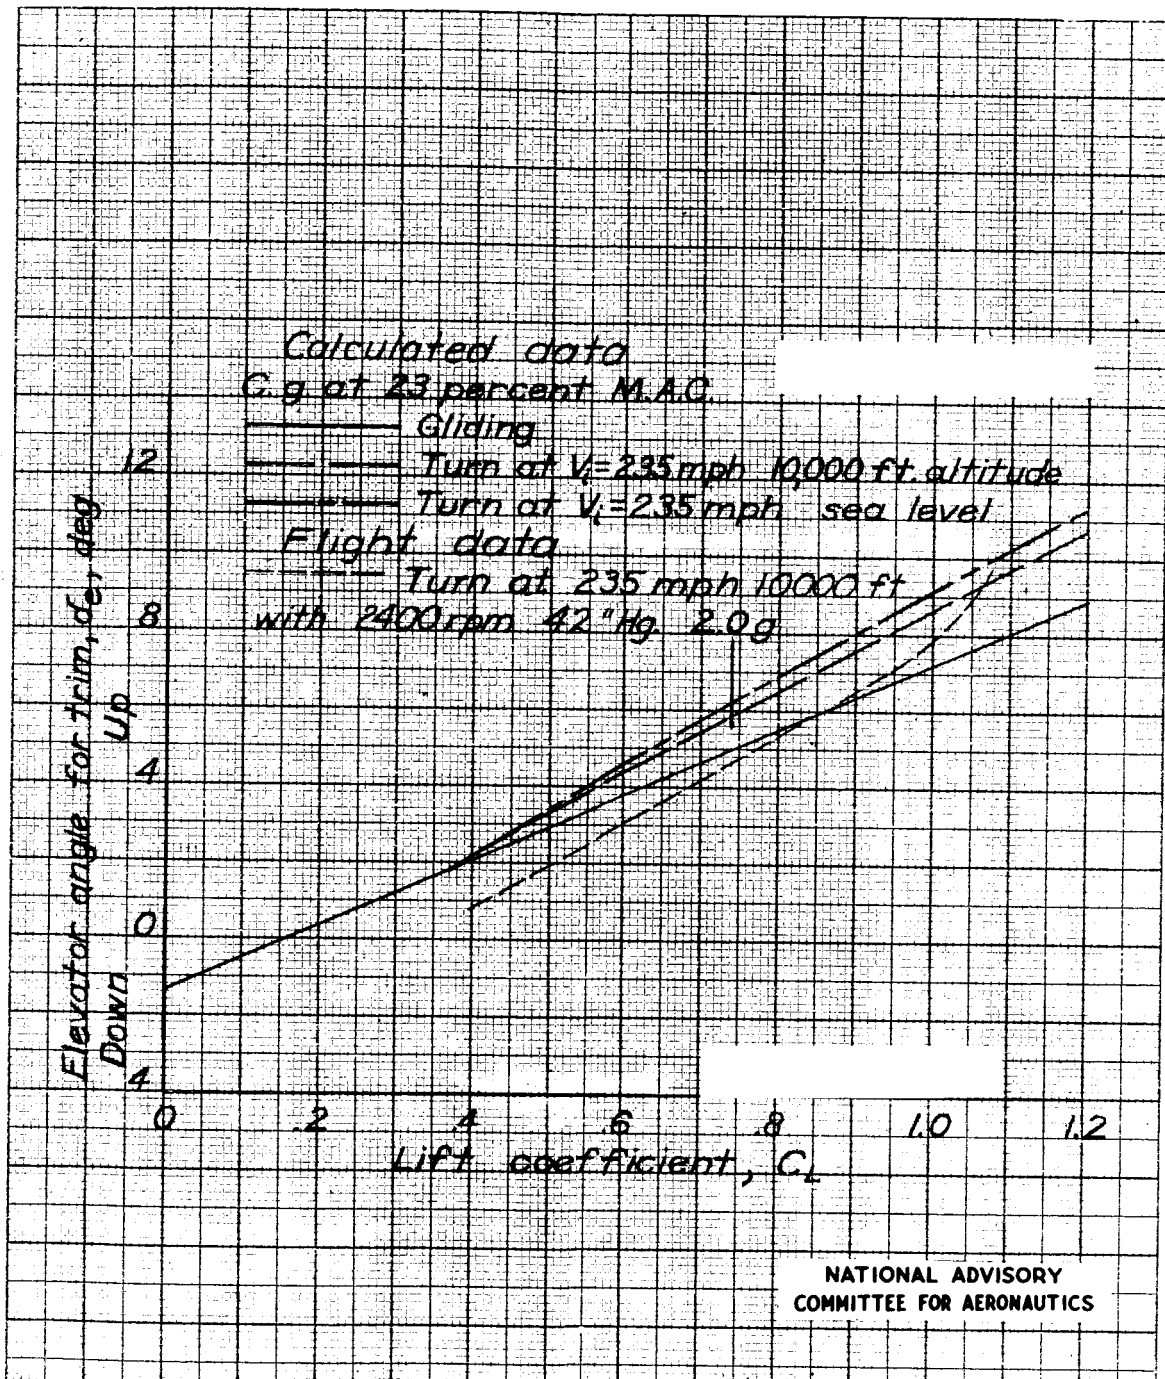 Calculated data
C.g. at 23 percent M.A.C.
Gliding
Turn at Vi=235 mph 10,000 ft. altitude
Turn at Vi=235 mph sea level
Flight data
Turn at 235 mph 10000 ft
with 2400 rpm 42 "Hg. 2.0g
Elevator angle for trim, de, deg
Down Up
12
8
4
0
4
0 .2 .4 .6 .8 1.0 1.2
Lift coefficient, CL
NATIONAL ADVISORY
COMMITTEE FOR AERONAUTICS